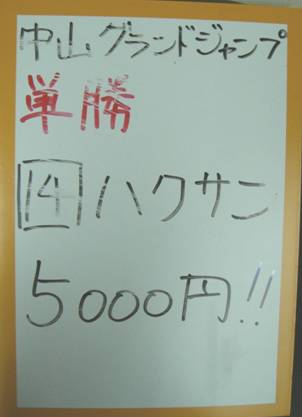 中山グランドジャンプ
単勝
14 ハクサン
5000円!!